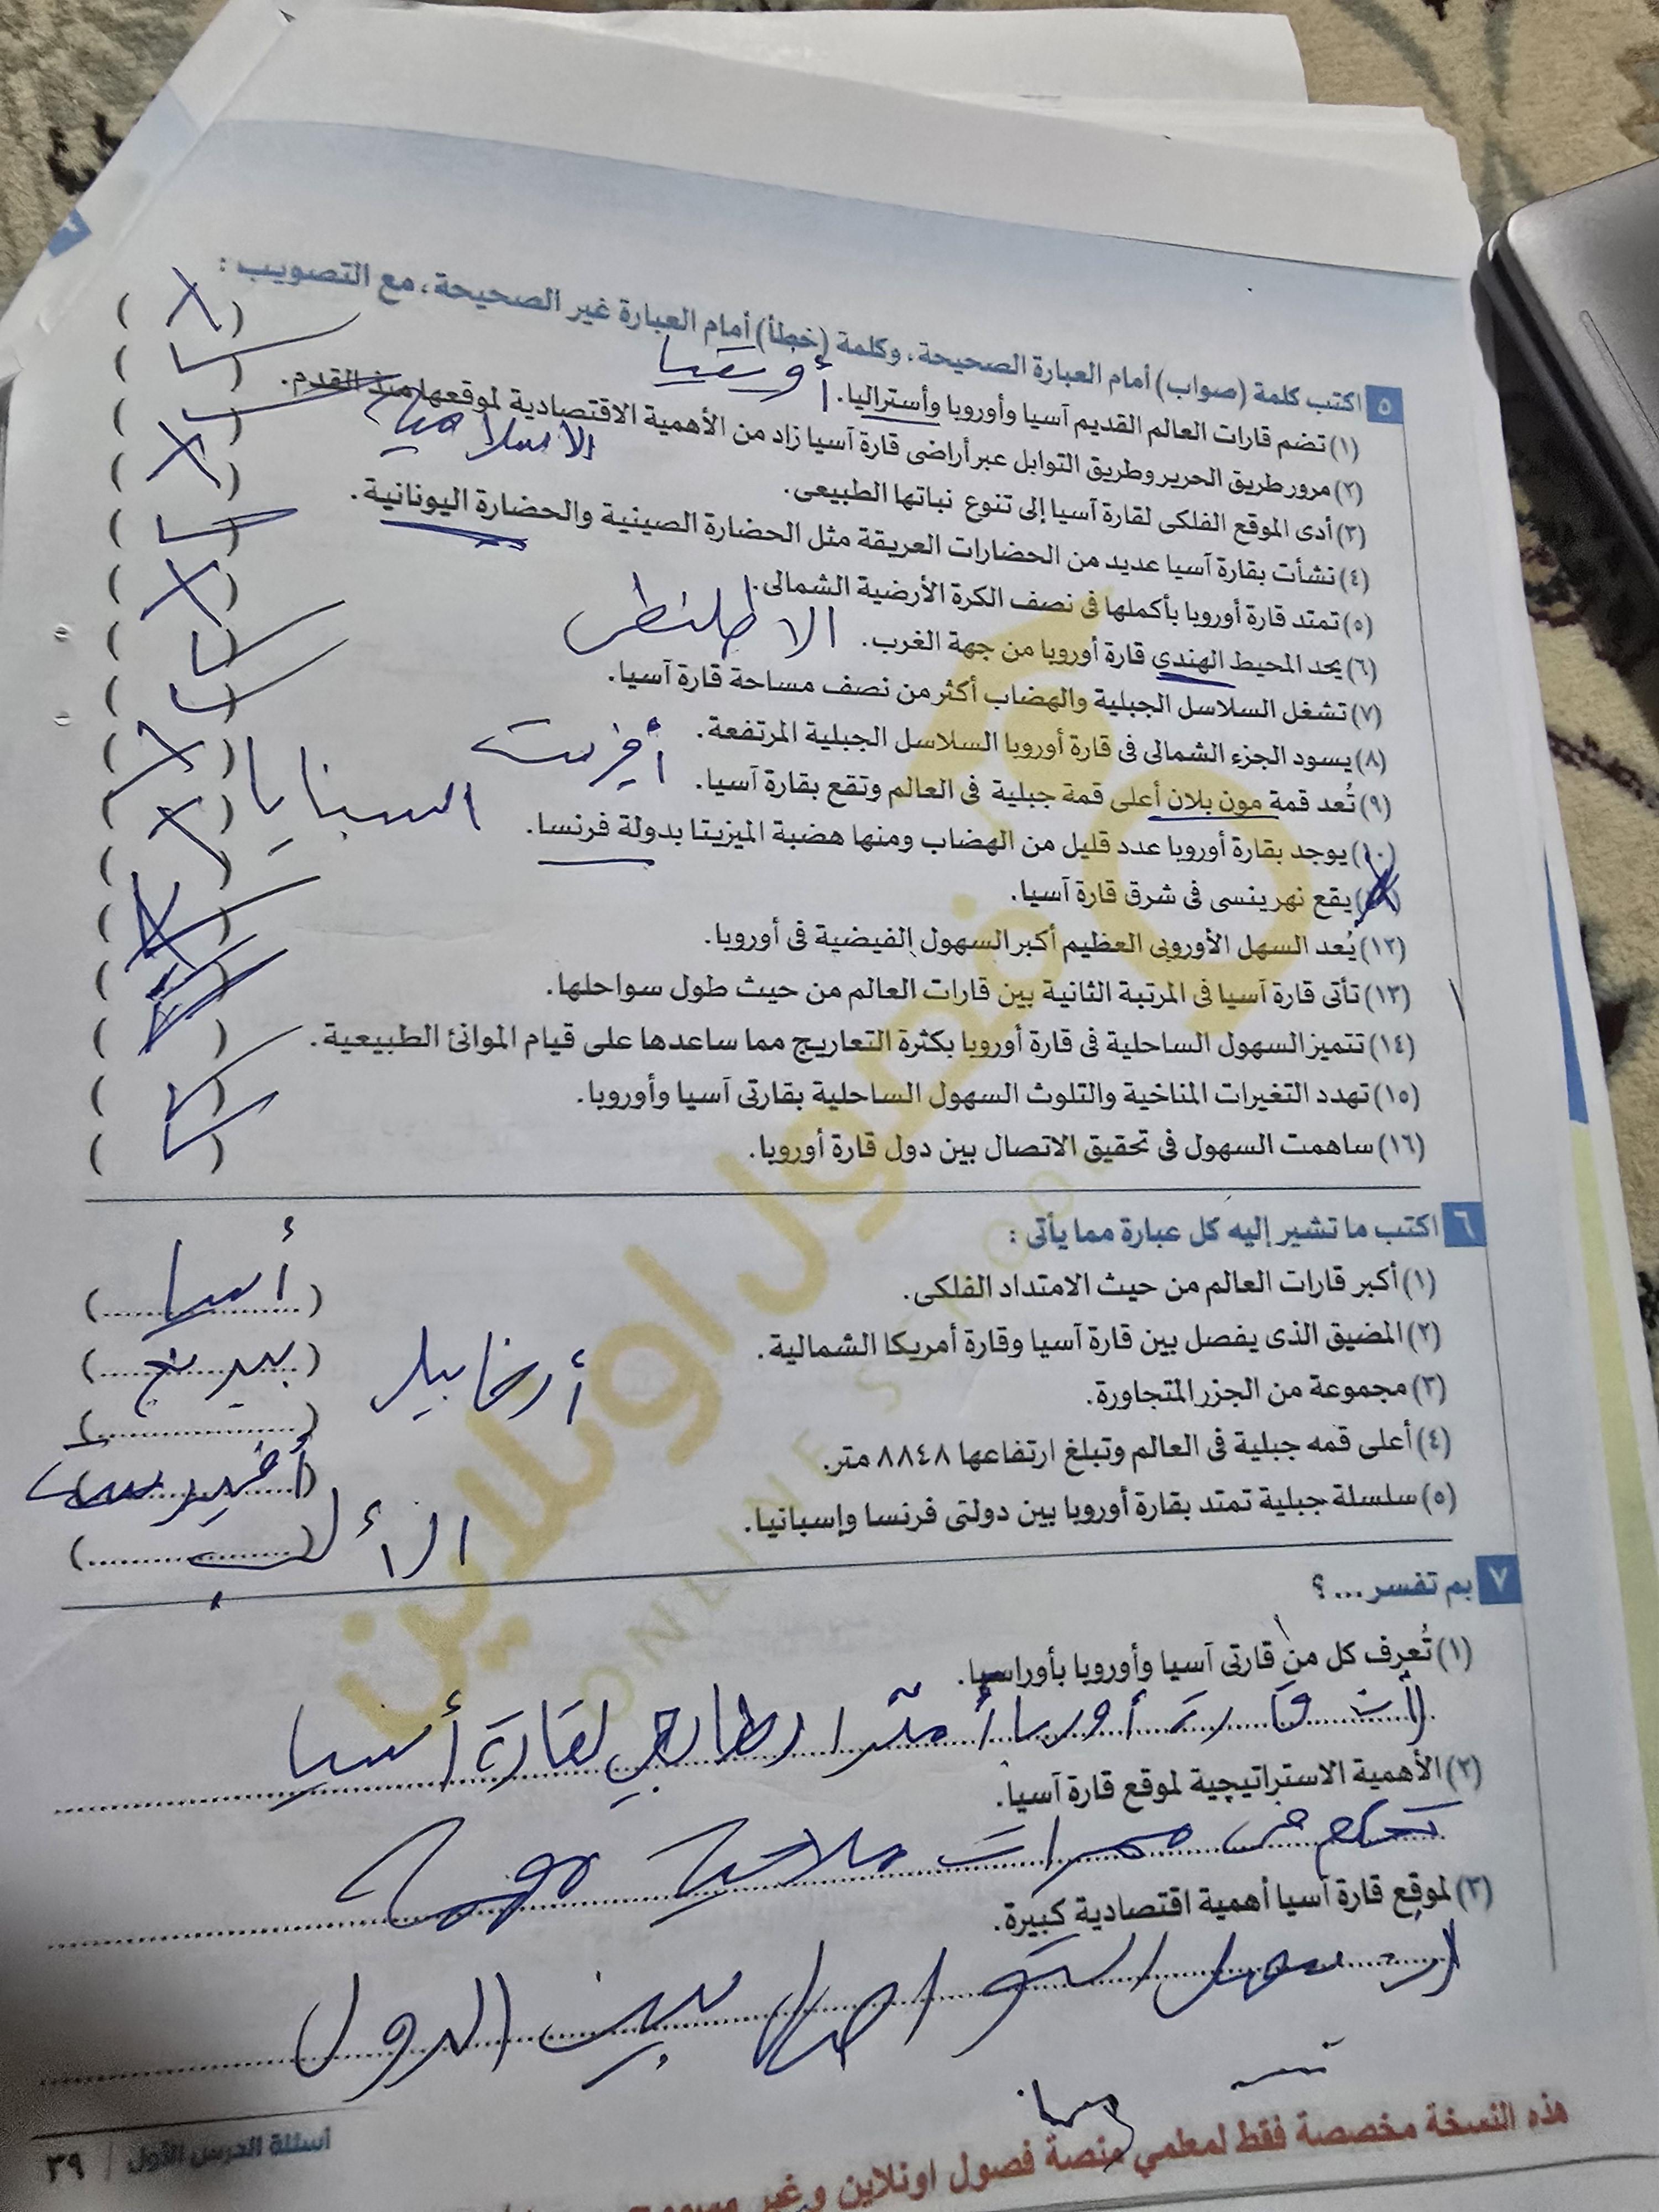 ٥ اكتب كلمة (صواب) أمام العبارة الصحيحة، وكلمة (خطأ) أمام العبارة غير الصحيحة، مع التصويب :
(١) تضم قارات العالم القديم آسيا وأوروبا وأستراليا. (X)
(٢) مرور طريق الحرير وطريق التوابل عبر أراضى قارة آسيا زاد من الأهمية الاقتصادية لموقعها منذ القدم. (✓)
(٣) أدى الموقع الفلكى لقارة آسيا إلى تنوع نباتها الطبيعى. (✓)
الاسلامية
(٤) نشأت بقارة آسيا عديد من الحضارات العريقة مثل الحضارة الصينية والحضارة اليونانية. (X)
(٥) تمتد قارة أوروبا بأكملها فى نصف الكرة الأرضية الشمالى. (✓)
(٦) يحد المحيط الهندي قارة أوروبا من جهة الغرب. الاطلنطى (X)
(٧) تشغل السلاسل الجبلية والهضاب أكثر من نصف مساحة قارة آسيا. (✓)
(٨) يسود الجزء الشمالى فى قارة أوروبا السلاسل الجبلية المرتفعة. (✓)
(٩) تُعد قمة مون بلان أعلى قمة جبلية فى العالم وتقع بقارة آسيا. (X)
(١٠) يوجد بقارة أوروبا عدد قليل من الهضاب ومنها هضبة الميزيتا بدولة فرنسا. (X)
يقع نهر ينسى فى شرق قارة آسيا.
(١٢) يُعد السهل الأوروبى العظيم أكبر السهول الفيضية فى أوروبا.
(١٣) تأتى قارة آسيا فى المرتبة الثانية بين قارات العالم من حيث طول سواحلها.
(١٤) تتميز السهول الساحلية فى قارة أوروبا بكثرة التعاريج مما ساعدها على قيام الموانئ الطبيعية.
(١٥) تهدد التغيرات المناخية والتلوث السهول الساحلية بقارتى آسيا وأوروبا. (✓)
(١٦) ساهمت السهول فى تحقيق الاتصال بين دول قارة أوروبا. (✓)
٦ اكتب ما تشير إليه كل عبارة مما يأتى :
(١) أكبر قارات العالم من حيث الامتداد الفلكى. (أسيا)
(٢) المضيق الذى يفصل بين قارة آسيا وقارة أمريكا الشمالية. (بيرنج)
(٣) مجموعة من الجزر المتجاورة. أرخابيل (....................)
(٤) أعلى قمه جبلية فى العالم وتبلغ ارتفاعها ٨٨٤٨ متر. (أفيرست)
(٥) سلسلة جبلية تمتد بقارة أوروبا بين دولتى فرنسا وإسبانيا. (الألب)
٧ بم تفسر... ؟
(١) تُعرف كل من قارتى آسيا وأوروبا بأوراسيا.
لقارة أسيا
(٢) الأهمية الاستراتيجية لموقع قارة آسيا.
ممرات ملاحية مهمة
(٣) لموقع قارة آسيا أهمية اقتصادية كبيرة.
سهل التواصل بين الدول
هذه النسخة مخصصة فقط لمعلمي منصة فصول اونلاين وغير
أسئلة الدرس الأول / ٣٩
فصول اونلاين
ONLINE SCHOOL